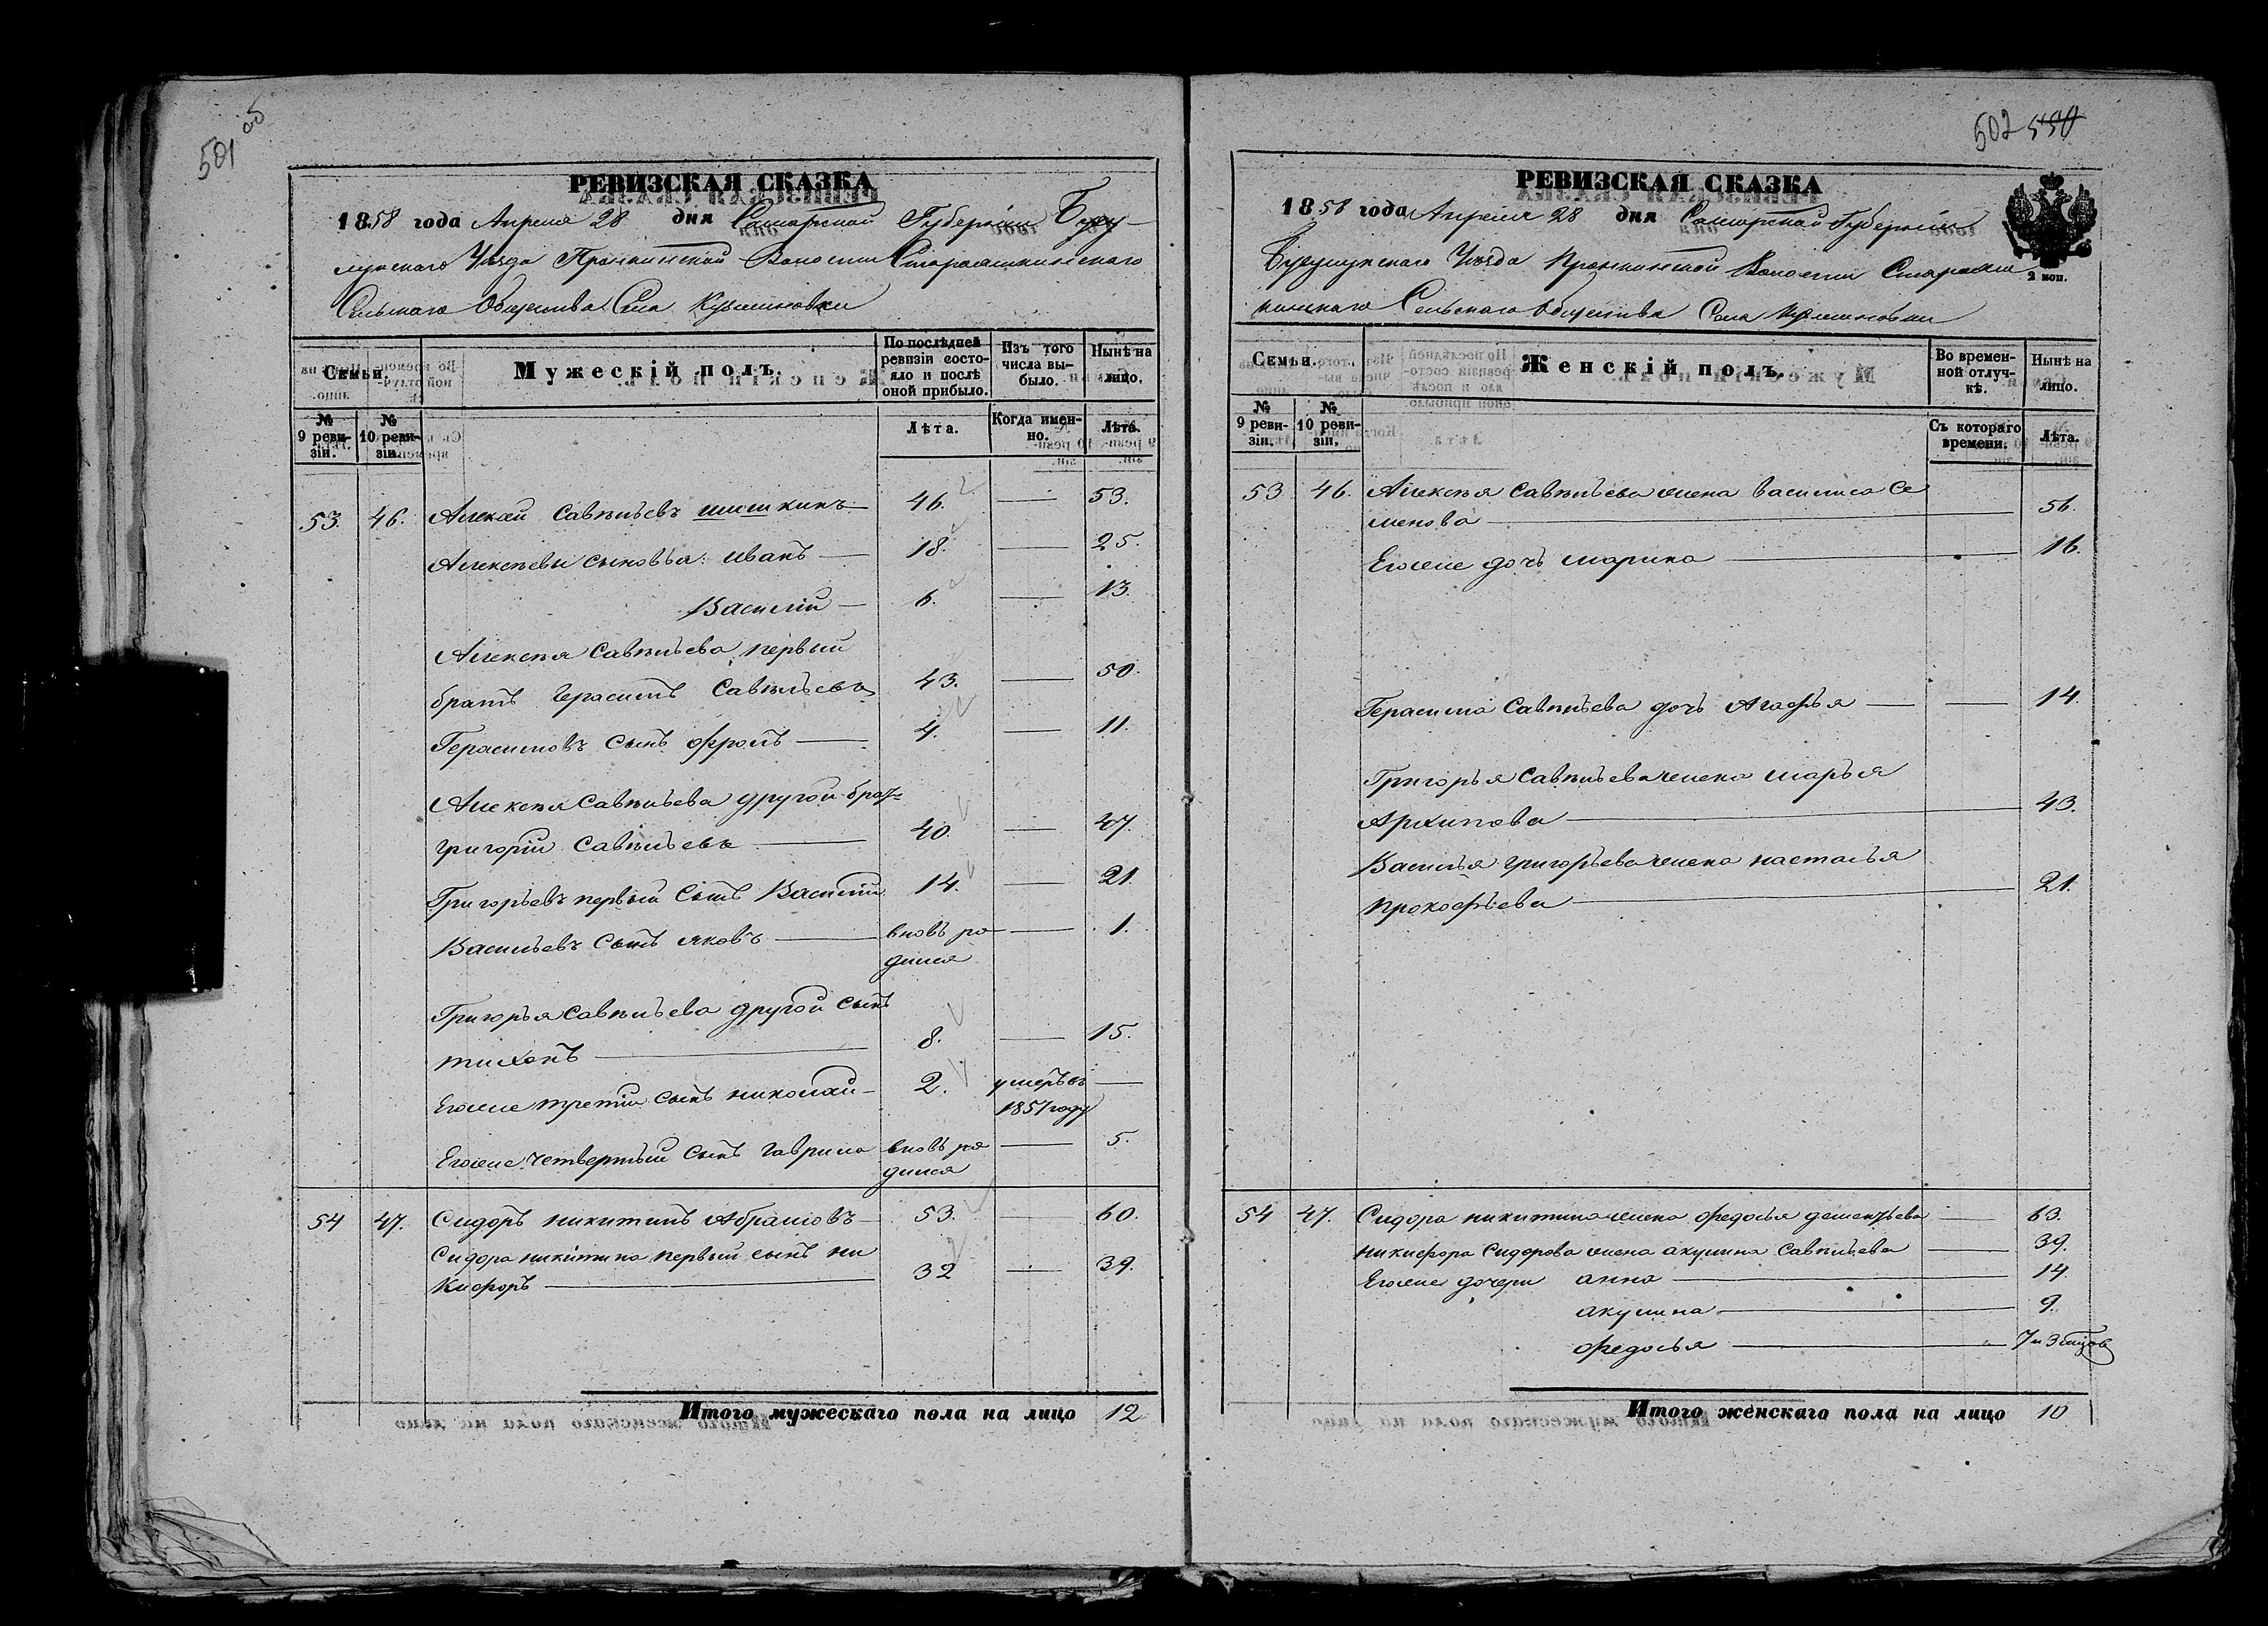 501 об
РЕВИЗСКАЯ СКАЗКА
1858 года Апреля 28 дня Самарской Губерніи Бузу-
лукскаго Уезда Пронкинской Волости Староашкинскаго
Сельскаго Общества Села Кузьминовки
Семьи.
Мужескій полъ.
По послѣдней ревизіи состо-
яло и послѣ оной прибыло.
Изъ того числа вы-
было.
Нынѣ на лицо.
№ 9 реви-
зіи.
№ 10 реви-
зіи.
Лѣта.
Когда имен-
но.
Лѣта.
53. 46. Алексѣй Савѣльевъ шишкинъ 46. 53.
Алексѣевы сыновья: иванъ 18. 25.
Василій 6. 13.
Алексѣя Савѣльева первый
братъ Герасимъ Савѣльевъ 43. 50.
Герасимовъ сынъ Фролъ 4. 11.
Алексѣя Савѣльева другой братъ
григорій Савѣльевъ 40. 47.
Григорьевъ первый сынъ Василій 14. 21.
Васильевъ сынъ яковъ вновь ро- 1.
дился
Григорья Савѣльева другой сынъ
тихонъ 8. 15.
Егоже третій сынъ николай 2. умеръ въ
1857 году
Егоже четвертый сынъ гаврила вновь ро 5.
дился
54 47. Сидоръ никитинъ Абрамовъ 53. 60.
Сидора никитина первый сынъ ни
кифоръ 32 39.
Итого мужескаго пола на лицо 12
502 550
РЕВИЗСКАЯ СКАЗКА
1858 года Апреля 28 дня Самарской Губерніи
Бузулукскаго Уезда Пронкинской Волости Староаш
кинскаго Сельскаго Общества Села Кузьминовки
2 коп.
Семьи.
Женскій полъ.
Во времен-
ной отлуч-
кѣ.
Нынѣ на лицо.
№ 9 реви-
зіи.
№ 10 реви-
зіи.
Съ котораго времени.
Лѣта.
53 46. Алексѣя Савѣльева жена василиса Се
менова 56.
Егоже дочь марина 16.
Герасима Савѣльева дочь Агафья 14.
Григорья Савѣльева жена марья
Архипова 43.
Василья григорьева жена настасья
прокофьева 21.
54 47. Сидора никитина жена федосья дементьева 63.
никифора Сидорова жена акулина Савѣльева 39.
Егоже дочери анна 14.
акулина 9.
федосья 7 и 3 мѣсяцов
Итого женскаго пола на лицо 10